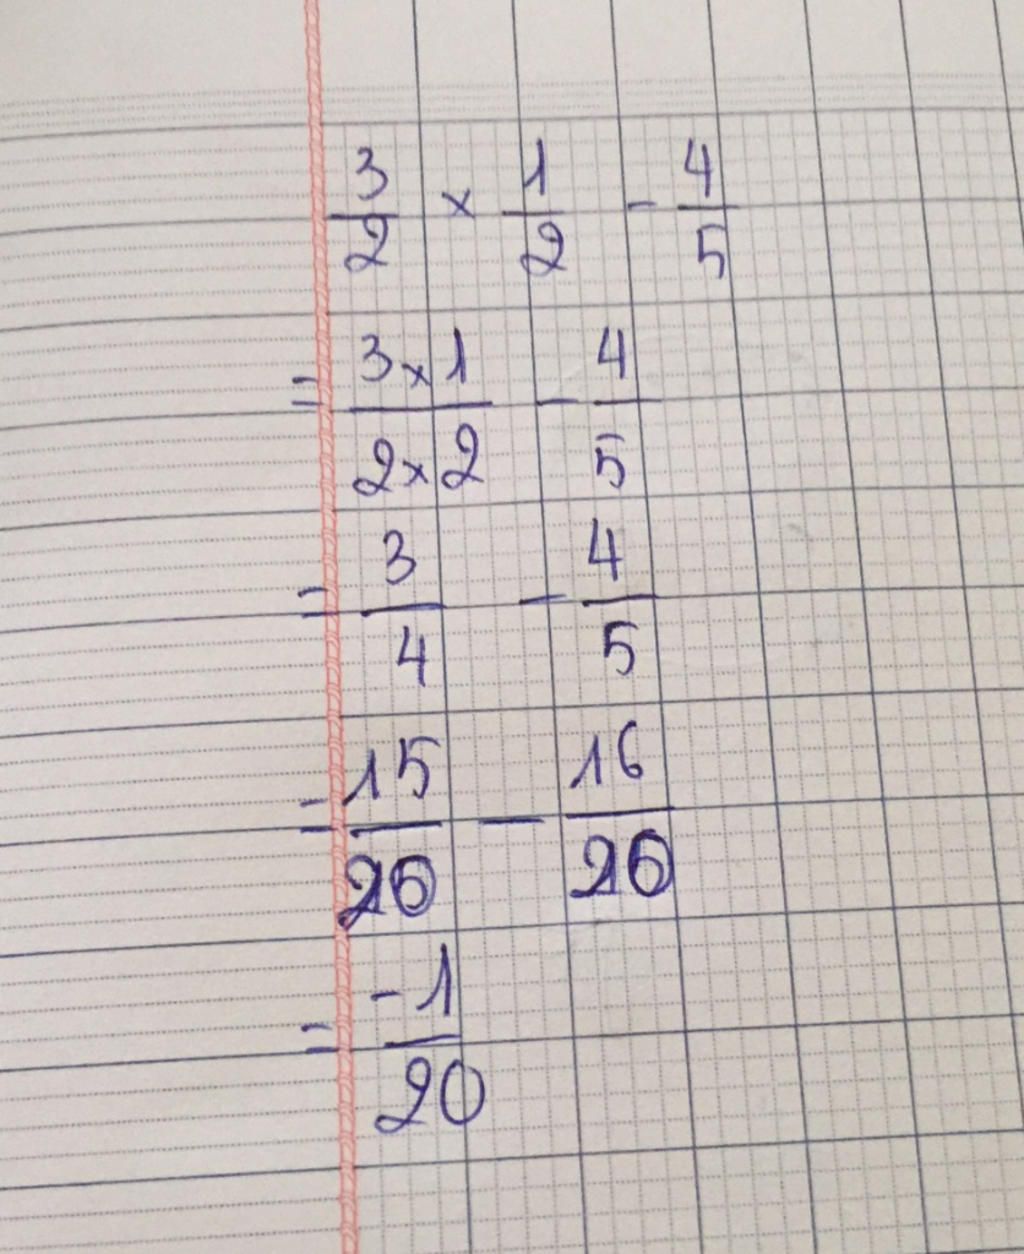 3/2 × 1/2 - 4/5
= 3×1/2×2 - 4/5
= 3/4 - 4/5
= 15/20 - 16/20
= -1/20